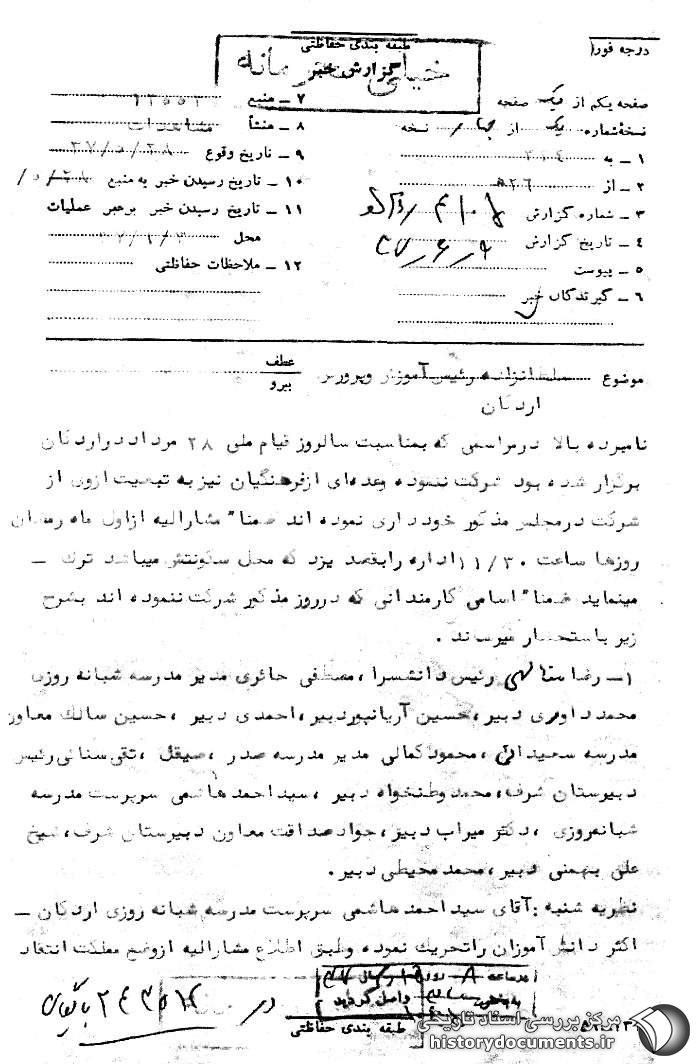 درجه فور(
طبقه بندی حفاظتی
گزارش خبر
صفحه یکم از یک صفحه
نسخهٔ شماره یک از چهار نسخه
۱ ـ به ۳۱٤
۲ ـ از
۳ ـ شماره گزارش
٤ ـ تاریخ گزارش
۵ ـ پیوست
٦ ـ گیرندگان خبر
۷ ـ منبع
۸ ـ منشأ مشاهدات
۹ ـ تاریخ وقوع ۳۷/۵/۲۸
۱۰ ـ تاریخ رسیدن خبر به منبع
۱۱ ـ تاریخ رسیدن خبر برهبر عملیات
محل
۱۲ ـ ملاحظات حفاظتی
موضوع رئیس آموزش وپرورش
اردکان
عطف
پیرو
نامبرده بالا درمراسمی که بمناسبت سالروز قیام ملی ۲۸ مرداد دراردکان
برگزار شده بود شرکت ننموده وعده‌ای ازفرهنگیان نیزبه تبعیت ازوی از
شرکت درمجلس مذکور خود داری نموده اند ضمنا" مشارالیه ازاول ماه رمضان
روزها ساعت ۱۱/۳۰ اداره رابقصد یزد که محل سکونتش میباشد ترک ـ
مینماید ضمنا" اسامی کارمندانی که درروز مذکور شرکت ننموده اند بشرح
زیر باستحضار میرساند .
۱ـ رضا رئیس دانشسرا ، مصطفی حائری مدیر مدرسه شبانه روزی
محمد داوری دبیر ، حسین آریانپور دبیر ، احمدی دبیر ، حسین سالک معاون
مدرسه سعیدان ، محمود کمالی مدیر مدرسه صدر ، صیقل ، تقی سنائی رئیس
دبیرستان شرف ، محمد وطنخواه دبیر ، سید احمد هاشمی سرپرست مدرسه
شبانه‌روزی ، دکتر میراب دبیر ، جواد صداقت معاون دبیرستان شرف ، شیخ
علی بهمنی دبیر ، محمد محیطی دبیر .
نظریه شنبه : آقای سید احمد هاشمی سرپرست مدرسه شبانه روزی اردکان ـ
اکثر دانش آموزان راتحریک نموده وطبق اطلاع مشارالیه ازوضع مملکت انتقاد
واصل گردید
طبقه بندی حفاظتی
مرکز بررسی اسناد تاریخی
historydocuments.ir